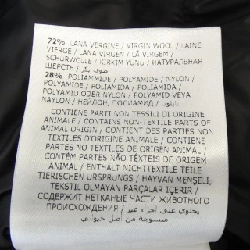 72% LANA VERGINE / VIRGIN WOOL / LAINE
VIERGE / LANA VIRGEN / LÃ VIRGEM /
SCHURWOLLE / KIRKIM YÜNÜ / НАТУРАЛЬНАЯ
ШЕРСТЬ /
28% POLIAMMIDE / POLYAMIDE / NYLON /
POLYAMIDE / POLIAMIDA / POLIAMIDA /
POLYAMID ODER NYLON / POLYAMID VEYA
NAYLON / НЕЙЛОН, ПОЛИАМИД /
CONTIENE PARTI NON TESSILI DI ORIGINE
ANIMALE / CONTAINS NON-TEXTILE PARTS OF
ANIMAL ORIGIN / CONTIENT DES PARTIES NON
TEXTILES D'ORIGINE ANIMALE / CONTIENE
PARTES NO TEXTILES DE ORIGEN ANIMAL /
CONTÉM PARTES NÃO TÊXTEIS DE ORIGEM
ANIMAL / ENTHÄLT NICHTTEXTILE TEILE
TIERISCHEN URSPRUNGS / HAYVAN MENŞELİ
TEKSTİL OLMAYAN PARÇALAR İÇERİR /
СОДЕРЖИТ НЕТКАНЫЕ ЧАСТИ ЖИВОТНОГО
ПРОИСХОЖДЕНИЯ /